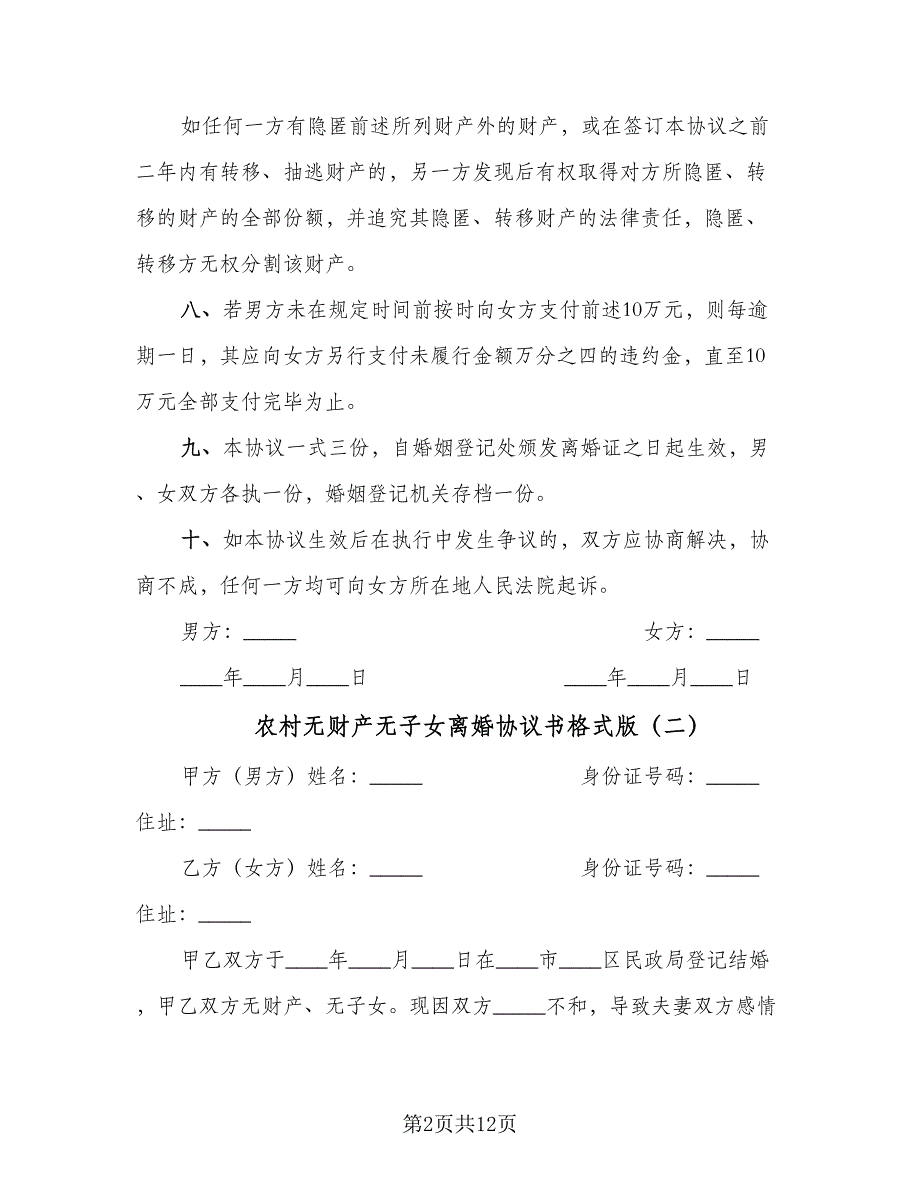 如任何一方有隐匿前述所列财产外的财产，或在签订本协议之前
二年内有转移、抽逃财产的，另一方发现后有权取得对方所隐匿、转
移的财产的全部份额，并追究其隐匿、转移财产的法律责任，隐匿、
转移方无权分割该财产。
八、若男方未在规定时间前按时向女方支付前述10万元，则每逾
期一日，其应向女方另行支付未履行金额万分之四的违约金，直至10
万元全部支付完毕为止。
九、本协议一式三份，自婚姻登记处颁发离婚证之日起生效，男
、女双方各执一份，婚姻登记机关存档一份。
十、如本协议生效后在执行中发生争议的，双方应协商解决，协
商不成，任何一方均可向女方所在地人民法院起诉。
男方：_____ 女方：_____
____年____月____日 ____年____月____日
农村无财产无子女离婚协议书格式版（二）
甲方（男方）姓名：_____ 身份证号码：_____
住址：_____
乙方（女方）姓名：_____ 身份证号码：_____
住址：_____
甲乙双方于____年____月____日在____市____区民政局登记结婚
，甲乙双方无财产、无子女。现因双方_____不和，导致夫妻双方感情
第2页共12页